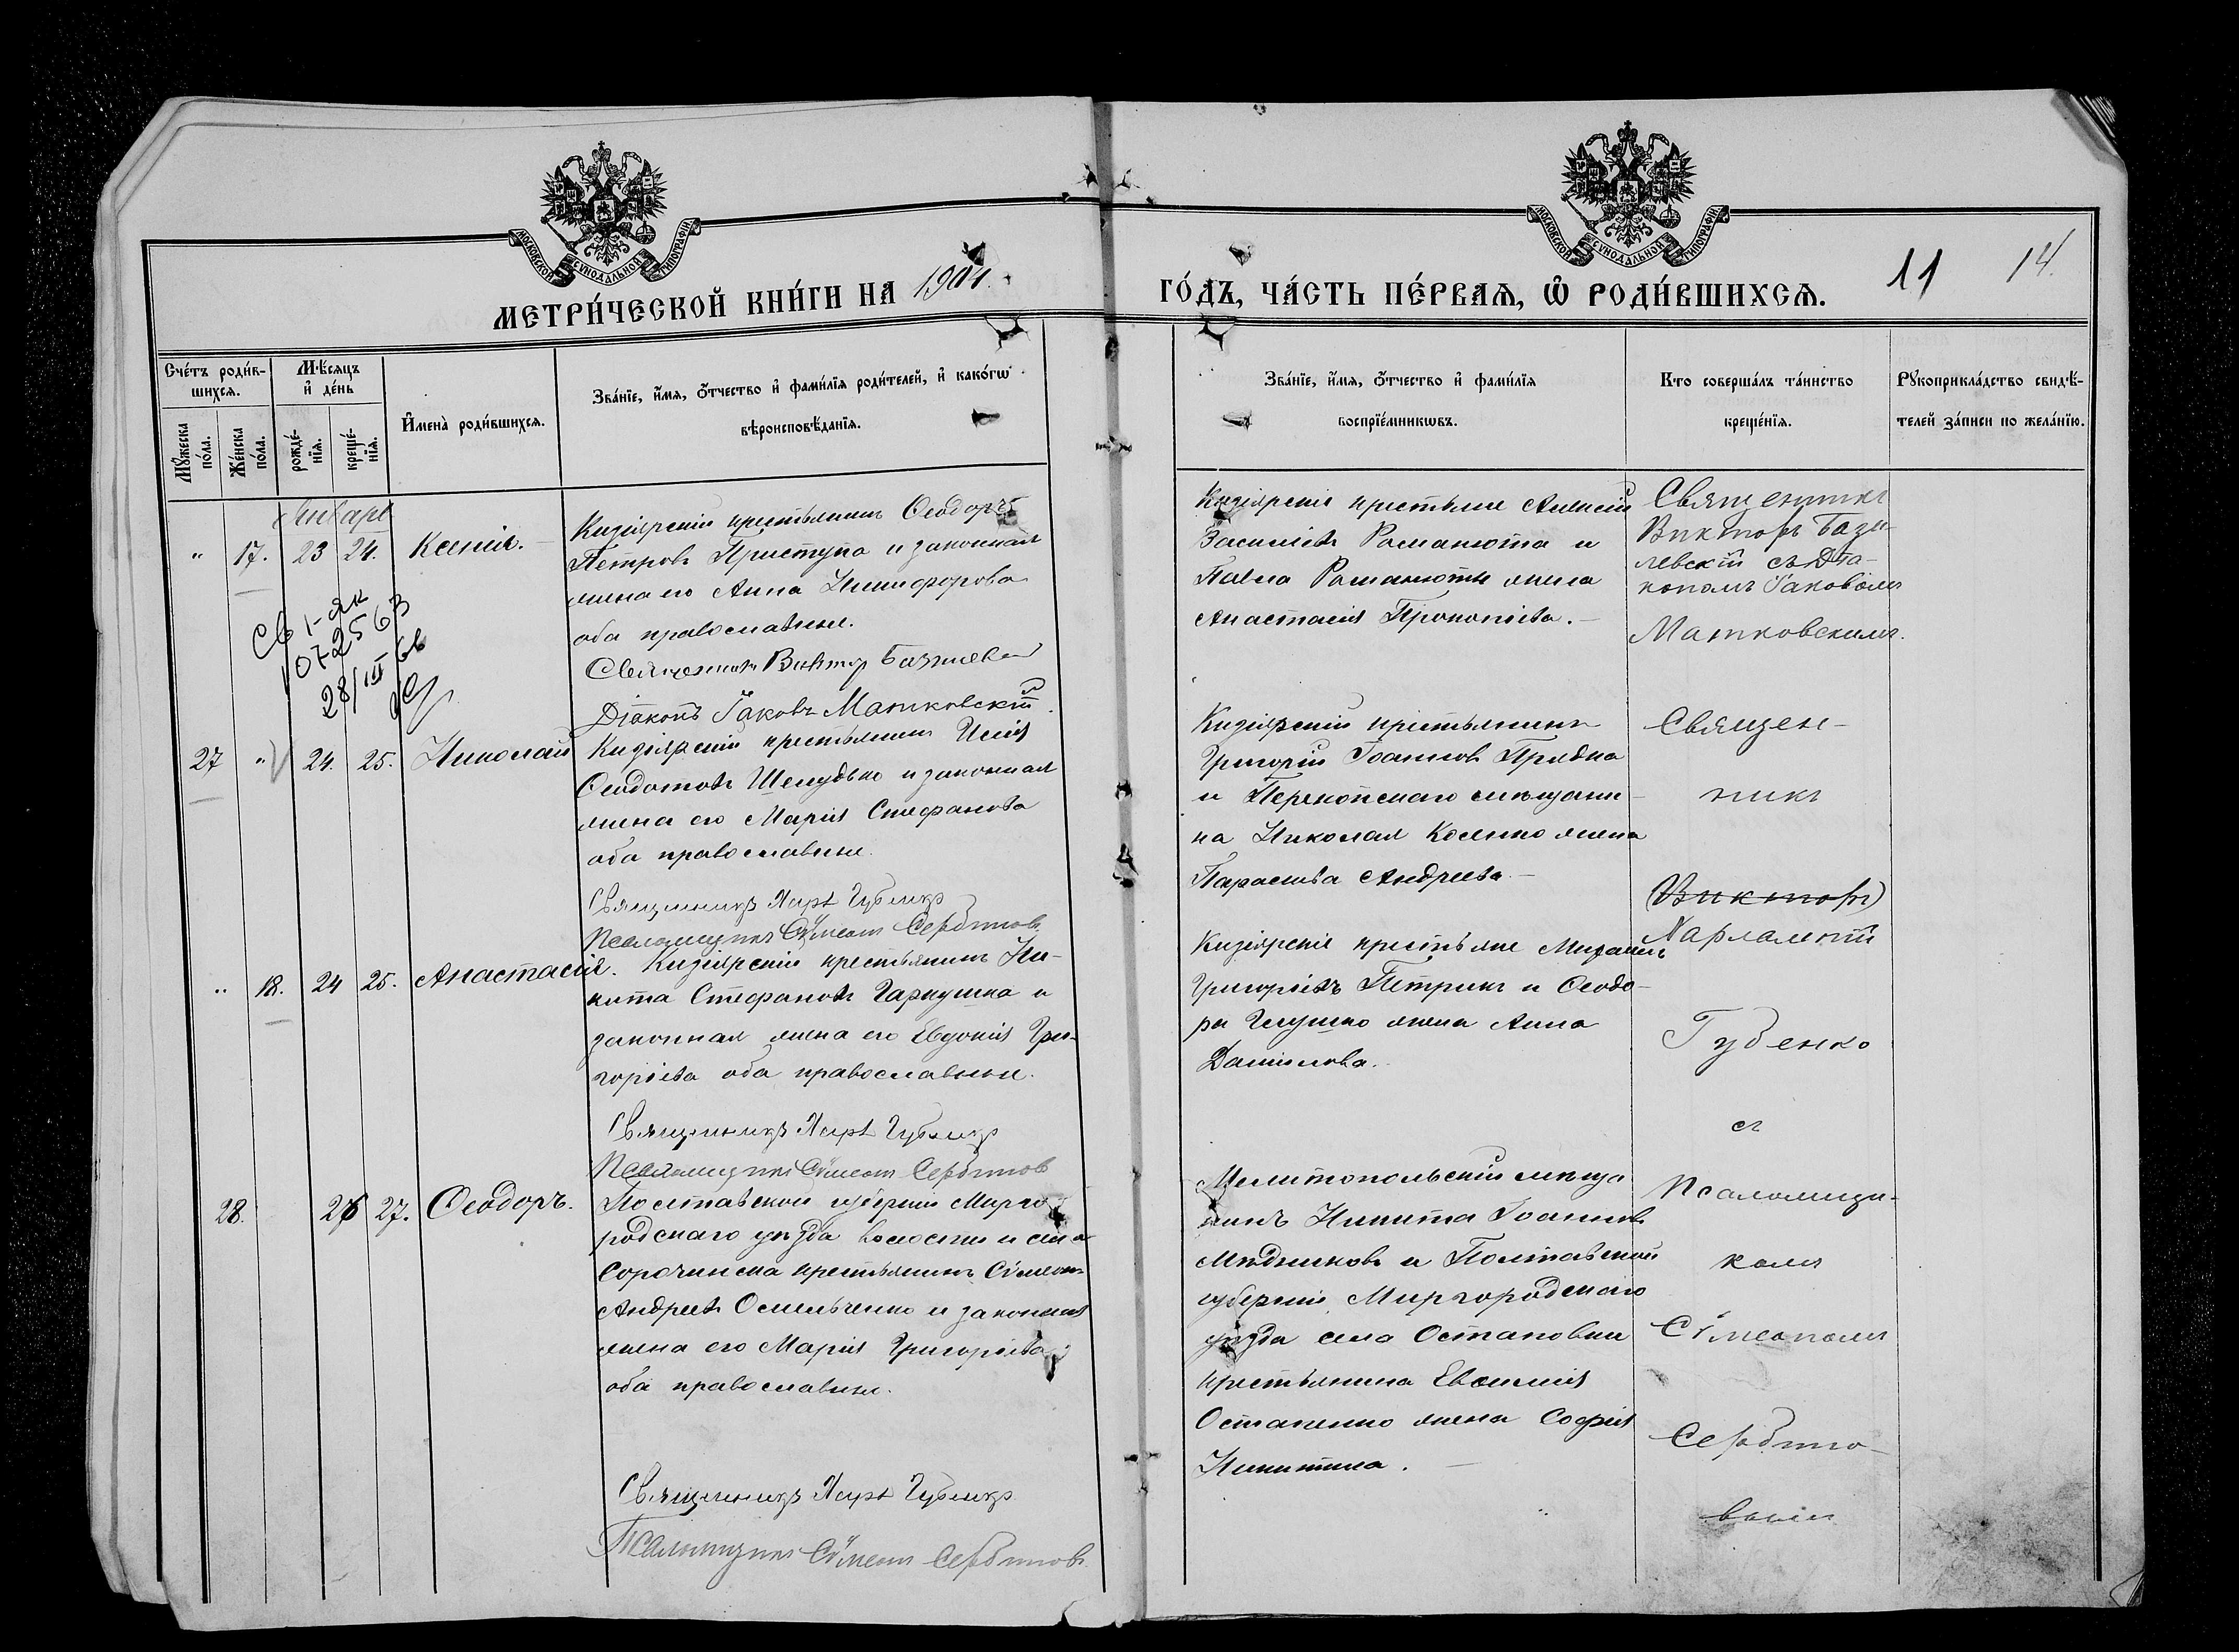 МОСКОВСКОЙ СѴНОДАЛЬНОЙ ТИПОГРАФІИ
МОСКОВСКОЙ СѴНОДАЛЬНОЙ ТИПОГРАФІИ
МЕТРИ́ЧЕСКОЙ КНИ́ГИ НА 1901.
ГО́ДЪ, ЧА́СТЬ ПЕ́РВАѦ, Ѽ РОДИ́ВШИХСѦ.
11 14.
Сче́тъ роди́в-
шихсѧ.
Мꙋ́жеска по́ла.
Же́нска по́ла.
Мѣ́сѧцъ
и҆ де́нь
рожде́-
нїѧ.
креще́-
нїѧ.
И҆мена̀ роди́вшихсѧ.
Зва́нїе, и҆́мѧ, ѻ҆́тчество и҆ фами́лїѧ роди́телей, и҆ како́гѡ
вѣроисповѣ́данїѧ.
Зва́нїе, и҆́мѧ, ѻ҆́тчество и҆ фами́лїѧ
воспрїе́мникѡвъ.
Кто соверша́лъ та́инство
креще́нїѧ.
Рꙋкоприкла́дство свидѣ́-
телей за́писи по жела́нїю.
Январь
" 17. 23 24. Ксенія.
Кизіярскій крестьянинъ Ѳеодоръ
Петровъ Приступа и законная
жена его Анна Никифорова
оба православные.
Священникъ Виктор Базилевскі
Діаконъ Іаковъ Матковскій
Кизіярскіе крестьяне Алексій
Василіевъ Романюта и
Павла Романюты жена
Анастасія Прокопіева.
Священникъ
Викторъ Бази-
левскій съ Діа-
кономъ Іаковомъ
Матковскимъ.
Св I-ЯК
072563
28/III 66
27 " 24. 25. Николай
Кизіярскій крестьянинъ Исаія
Ѳеодотовъ Шелудько и законная
жена его Марія Стефанова
оба православные.
Священникъ Харл Губенко
Псаломщикъ Сѵмеонъ Сербиновъ
Кизіярскій крестьянинъ
Григорій Іоанновъ Прядка
и Перекопскаго мѣщани-
на Николая Косенко жена
Параскева Андреева.
Священ-
никъ
Викторъ
Харлампій
Губенко
съ
Псаломщи-
комъ
Сѵмеономъ
Сербино-
вымъ
" 18. 24 25. Анастасія.
Кизіярскій крестьянинъ Ни-
кита Стефановъ Гаркушка и
законная жена его Евдокія Гри-
горіева оба православные.
Священникъ Харл Губенко
Псаломщикъ Сѵмеонъ Сербинов
Кизіярскіе крестьяне Михаилъ
Григоріевъ Петрикъ и Ѳеодо-
ра Глушко жена Анна
Даніилова.
28. 26 27. Ѳеодоръ.
Полтавской губерніи Мирго
родскаго уѣзда волости и села
Сорочинска крестьянинъ Сѵмеонъ
Андреевъ Омельченко и законная
жена его Марія Григоріева
оба православные.
Священникъ Харл Губенко
Псаломщикъ Сѵмеонъ Сербиновъ
Мелитопольскій мѣща
нинъ Никита Іоанновъ
Мѣдниковъ и Полтавской
губерніи Миргородскаго
уѣзда села Остаповки
крестьянина Евѳимія
Остапенко жена Софія
Никитина.